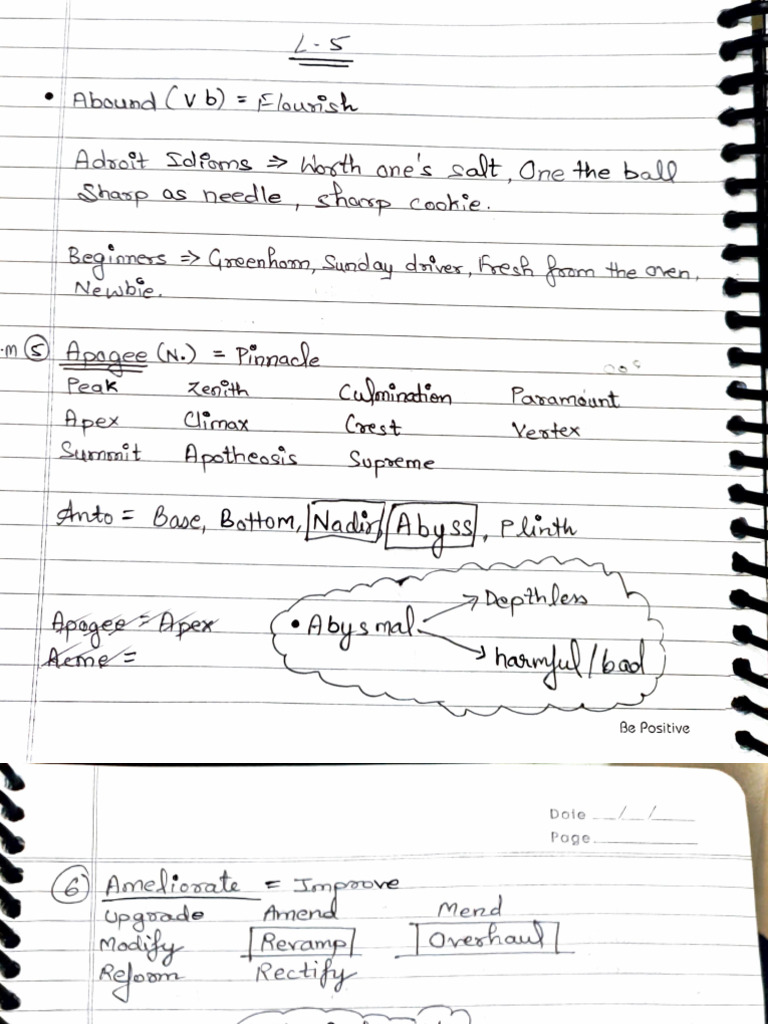 L-5
• Abound (Vb) = Flourish
Adroit Idioms ⇒ Worth one's salt, One the ball
Sharp as needle, sharp cookie.
Beginners ⇒ Greenhorn, Sunday driver, Fresh from the oven,
Newbie.
.m ⑤ Apogee (N.) = Pinnacle
Peak Zenith Culmination Paramount
Apex Climax Crest Vertex
Summit Apotheosis Supreme
Anto = Base, Bottom, Nadir, Abyss, Plinth
Depthless
Apogee = Apex • Abysmal
Acme = harmful/bad
Be Positive
Date __/__/__
Page
⑥ Ameliorate = Improve
Upgrade Amend Mend
Modify Revamp Overhaul
Reform Rectify